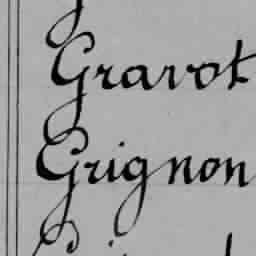 Gravot
Grignon